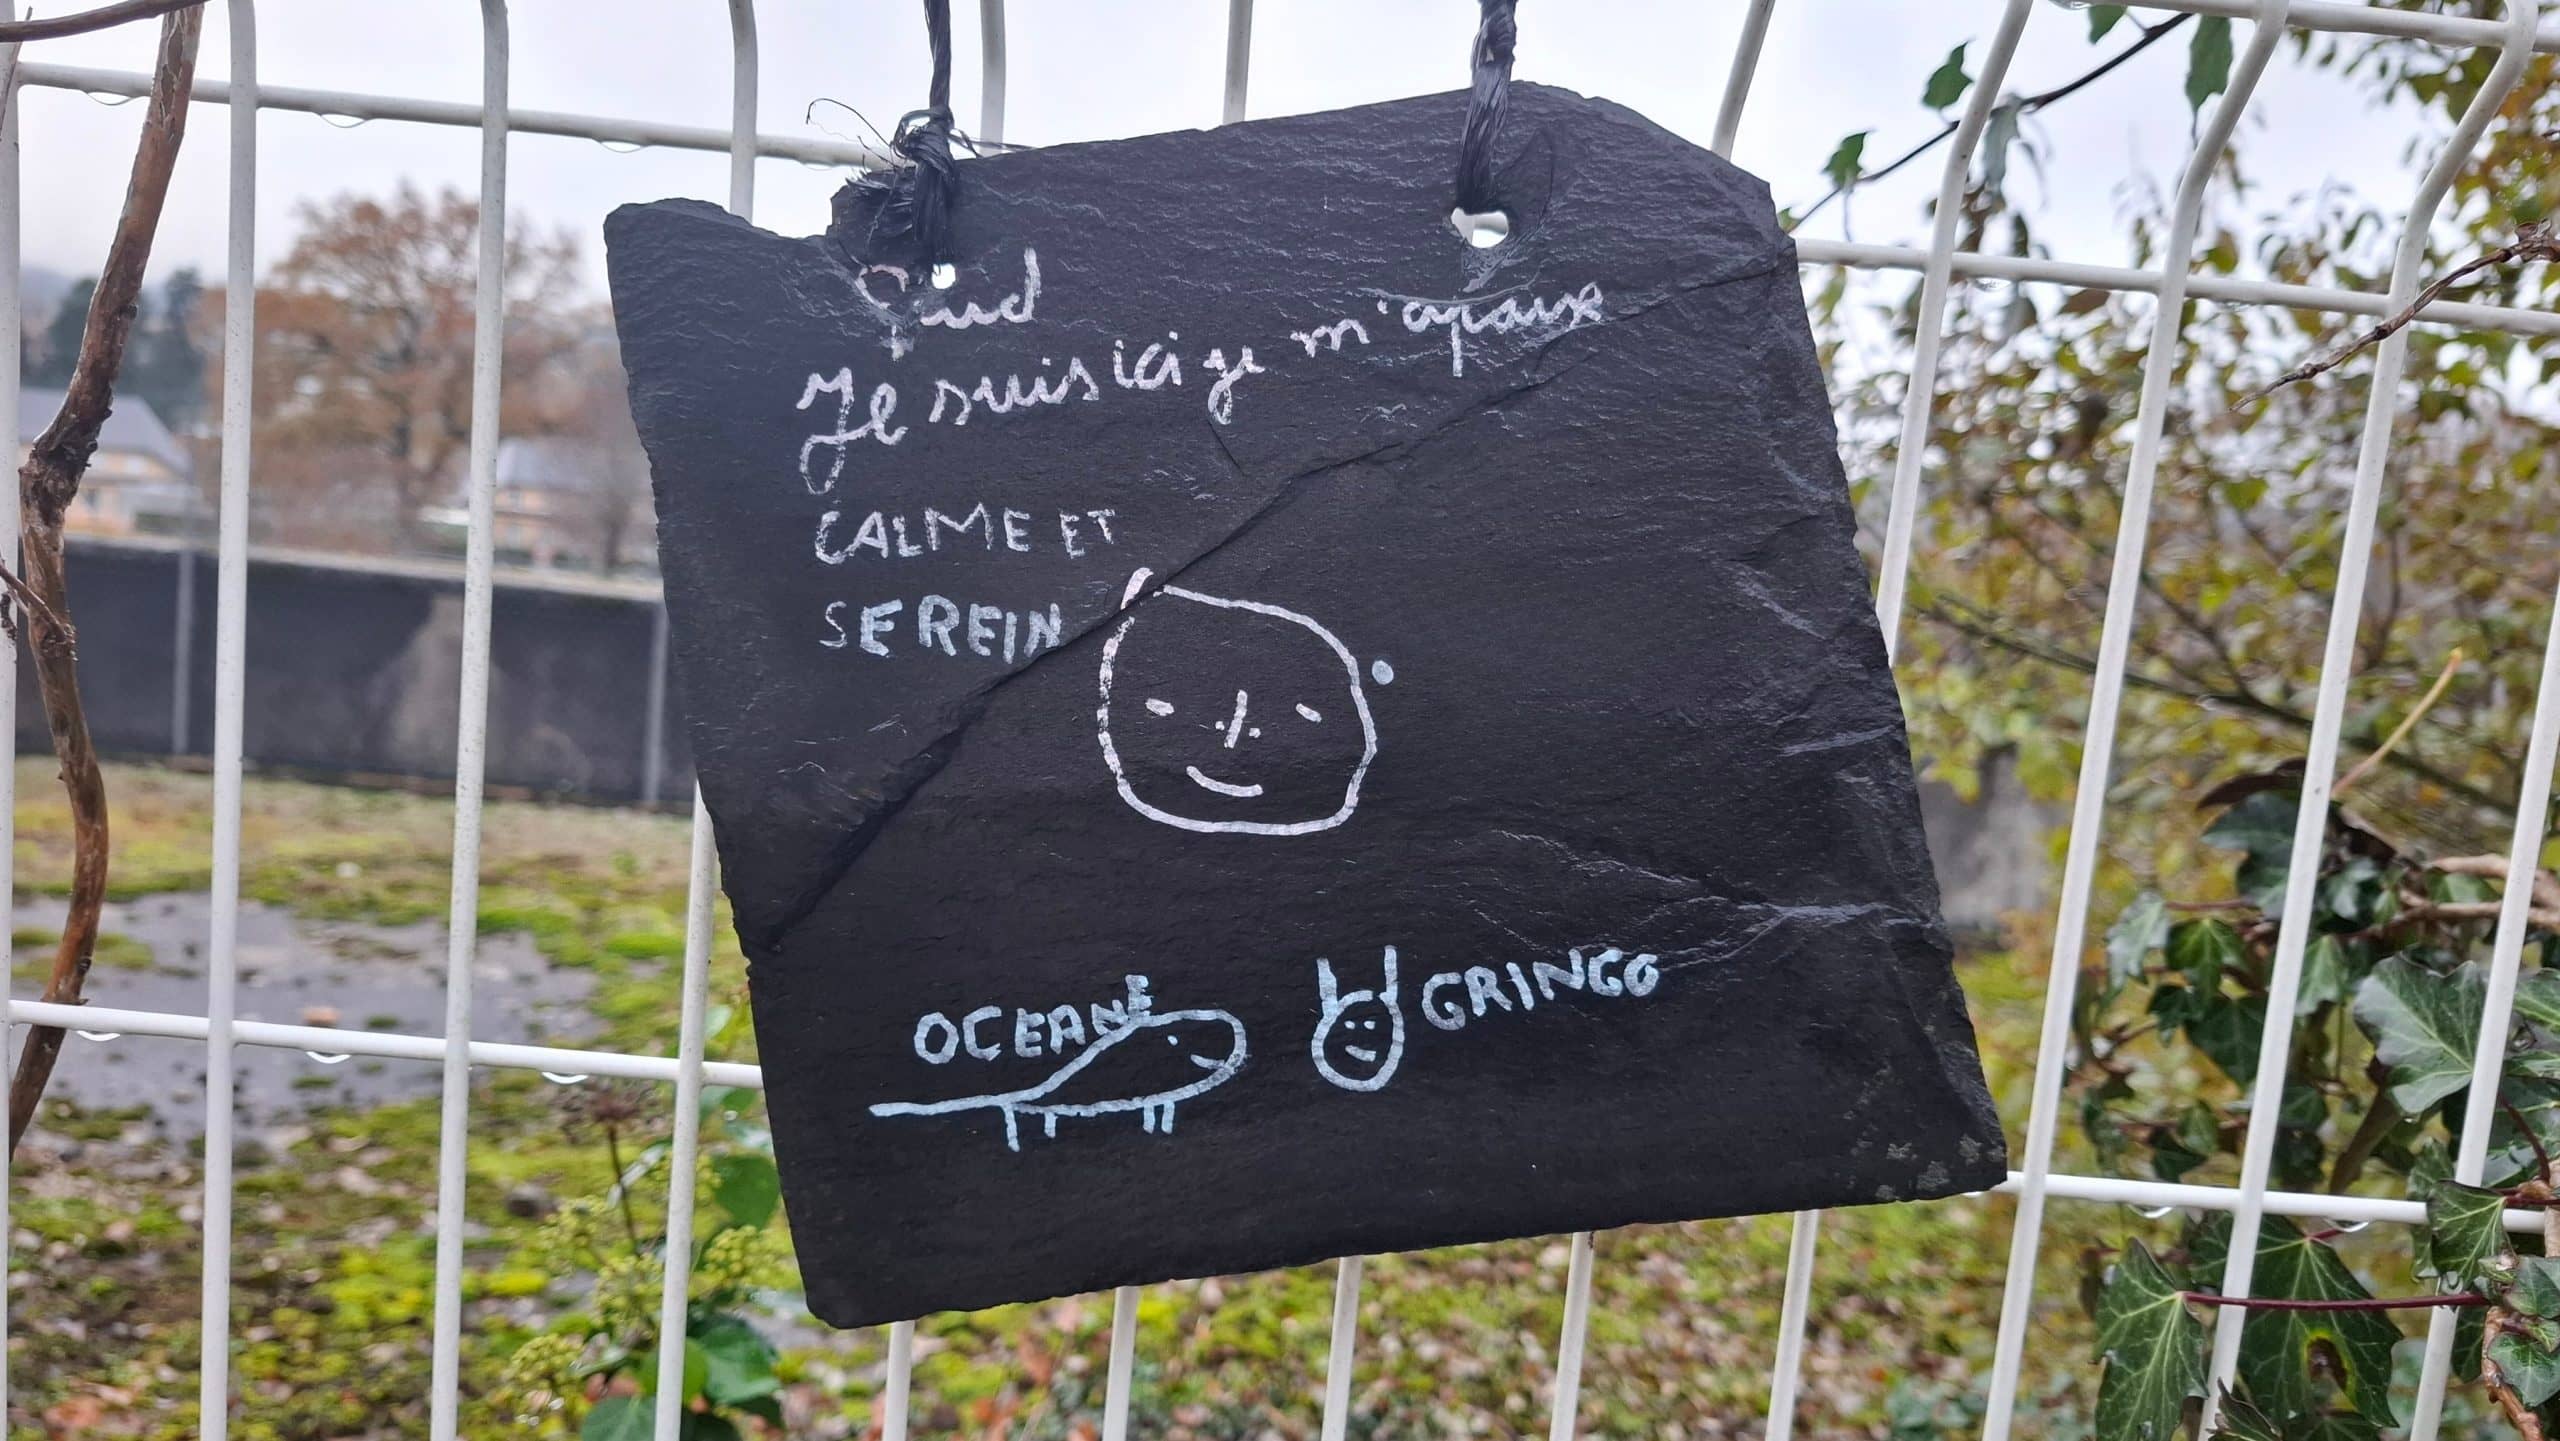 Je suis ici je m'apaux
CALME ET
SEREIN
OCEANE
GRINGO